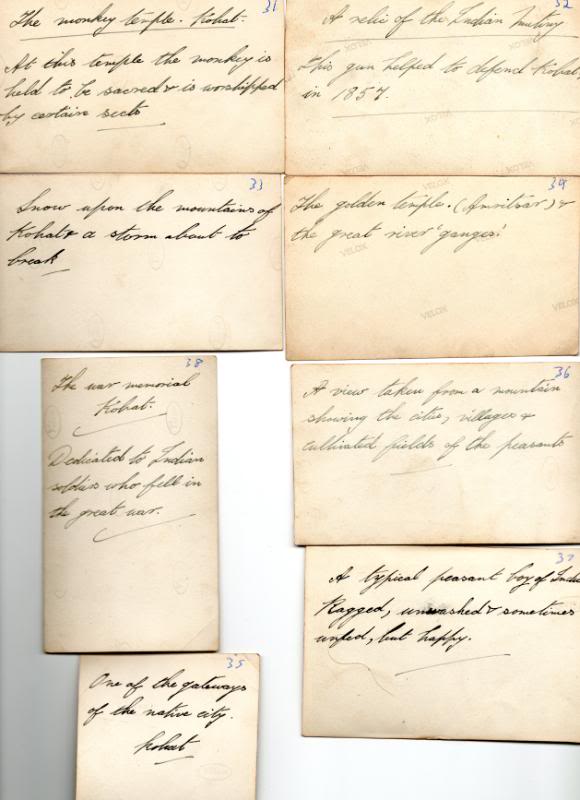 31
The monkey temple. Kohat.
At this temple the monkey is
held to be sacred & is worshipped
by certain sects
32
A relic of the Indian mutiny
This gun helped to defend Kohat,
in 1857.
33
Snow upon the mountains of
Kohat & a storm about to
break
34
The golden temple. (Amritsar) &
the great river 'ganges'
VELOX
VELOX
VELOX
VELOX
38
The war memorial
Kohat.
Dedicated to Indian
soldiers who fell in
the great war.
36
A view taken from a mountain
showing the cities, villages &
cultivated fields of the peasants
37
A typical peasant boy of India
Ragged, unwashed & sometimes
unfed, but happy.
35
One of the gateways
of the native city.
Kohat